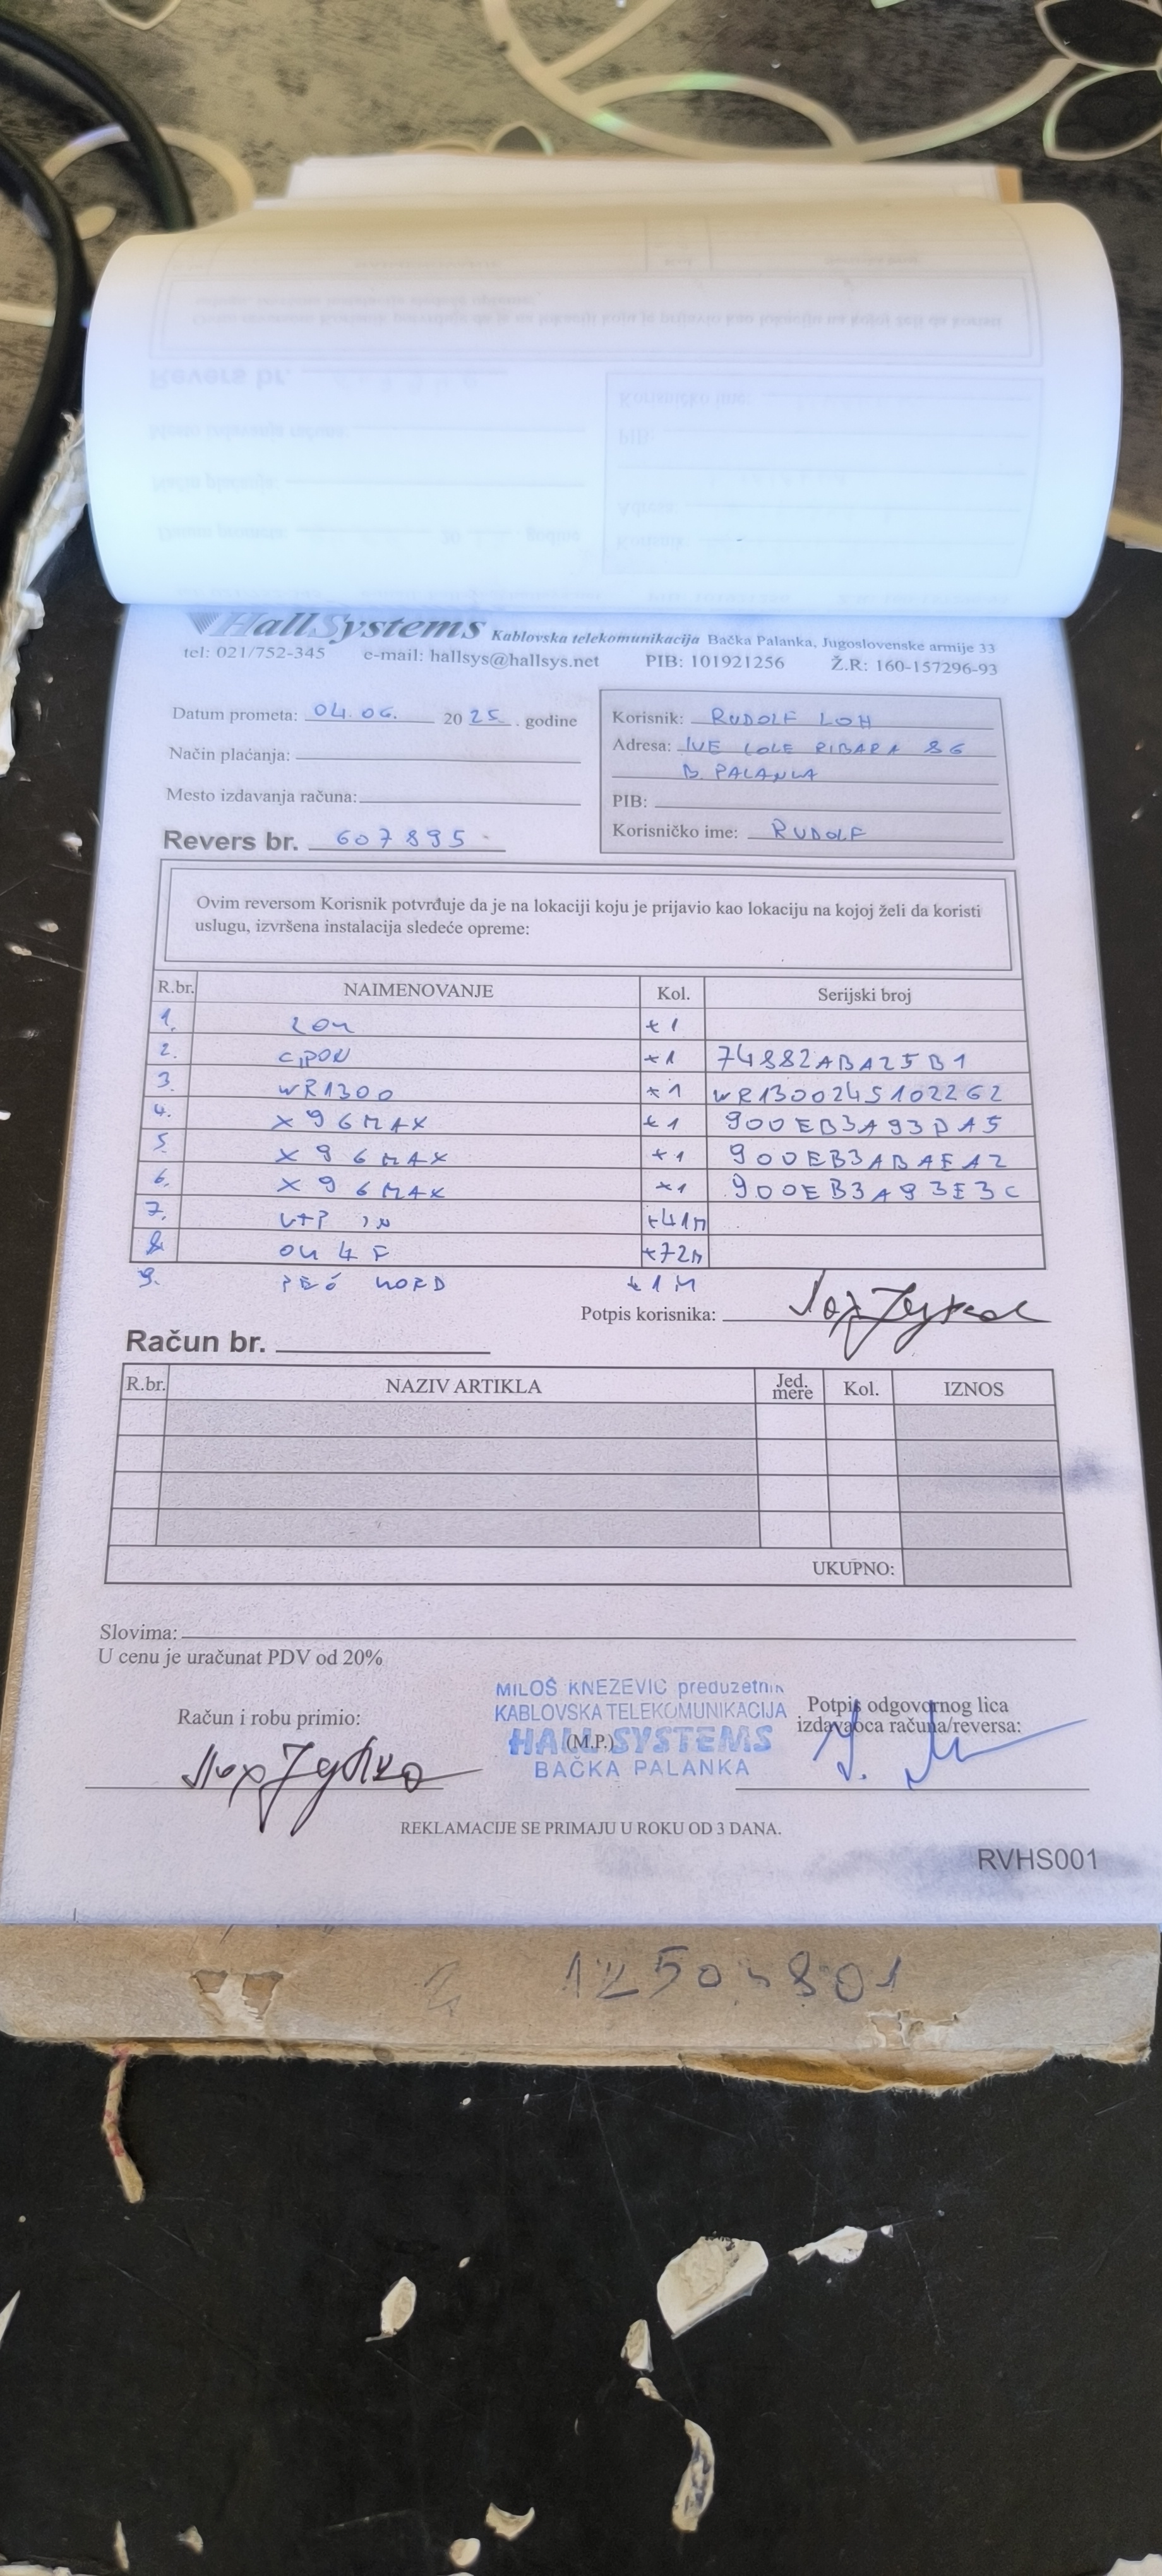 HallSystems Kablovska telekomunikacija Bačka Palanka, Jugoslovenske armije 33
tel: 021/752-345 e-mail: hallsys@hallsys.net PIB: 101921256 Ž.R: 160-157296-93
Datum prometa: 04.06. 2025. godine
Način plaćanja:
Mesto izdavanja računa:
Revers br. 607895
Korisnik: RUDOLF LOH
Adresa: IVE LOLE RIBARA 86
B. PALANKA
PIB:
Korisničko ime: RUDOLF
Ovim reversom Korisnik potvrđuje da je na lokaciji koju je prijavio kao lokaciju na kojoj želi da koristi
uslugu, izvršena instalacija sledeće opreme:
R.br. NAIMENOVANJE Kol. Serijski broj
1. +1
2. GPON +1 74882ABA25B1
3. WR1300 +1 WR1300245102262
4. X96MAX +1 900EB3A93DA5
5. X96MAX +1 900EB3ABAEA2
6. X96MAX +1 900EB3A93E3C
7. UTP IN +41M
8. +72M
9. +1M
Potpis korisnika:
Račun br.
R.br. NAZIV ARTIKLA Jed. mere Kol. IZNOS
UKUPNO:
Slovima:
U cenu je uračunat PDV od 20%
Račun i robu primio:
MILOŠ KNEŽEVIĆ preduzetnik
KABLOVSKA TELEKOMUNIKACIJA
HALL SYSTEMS
(M.P.)
BAČKA PALANKA
Potpis odgovornog lica
izdavaoca računa/reversa:
REKLAMACIJE SE PRIMAJU U ROKU OD 3 DANA.
RVHS001